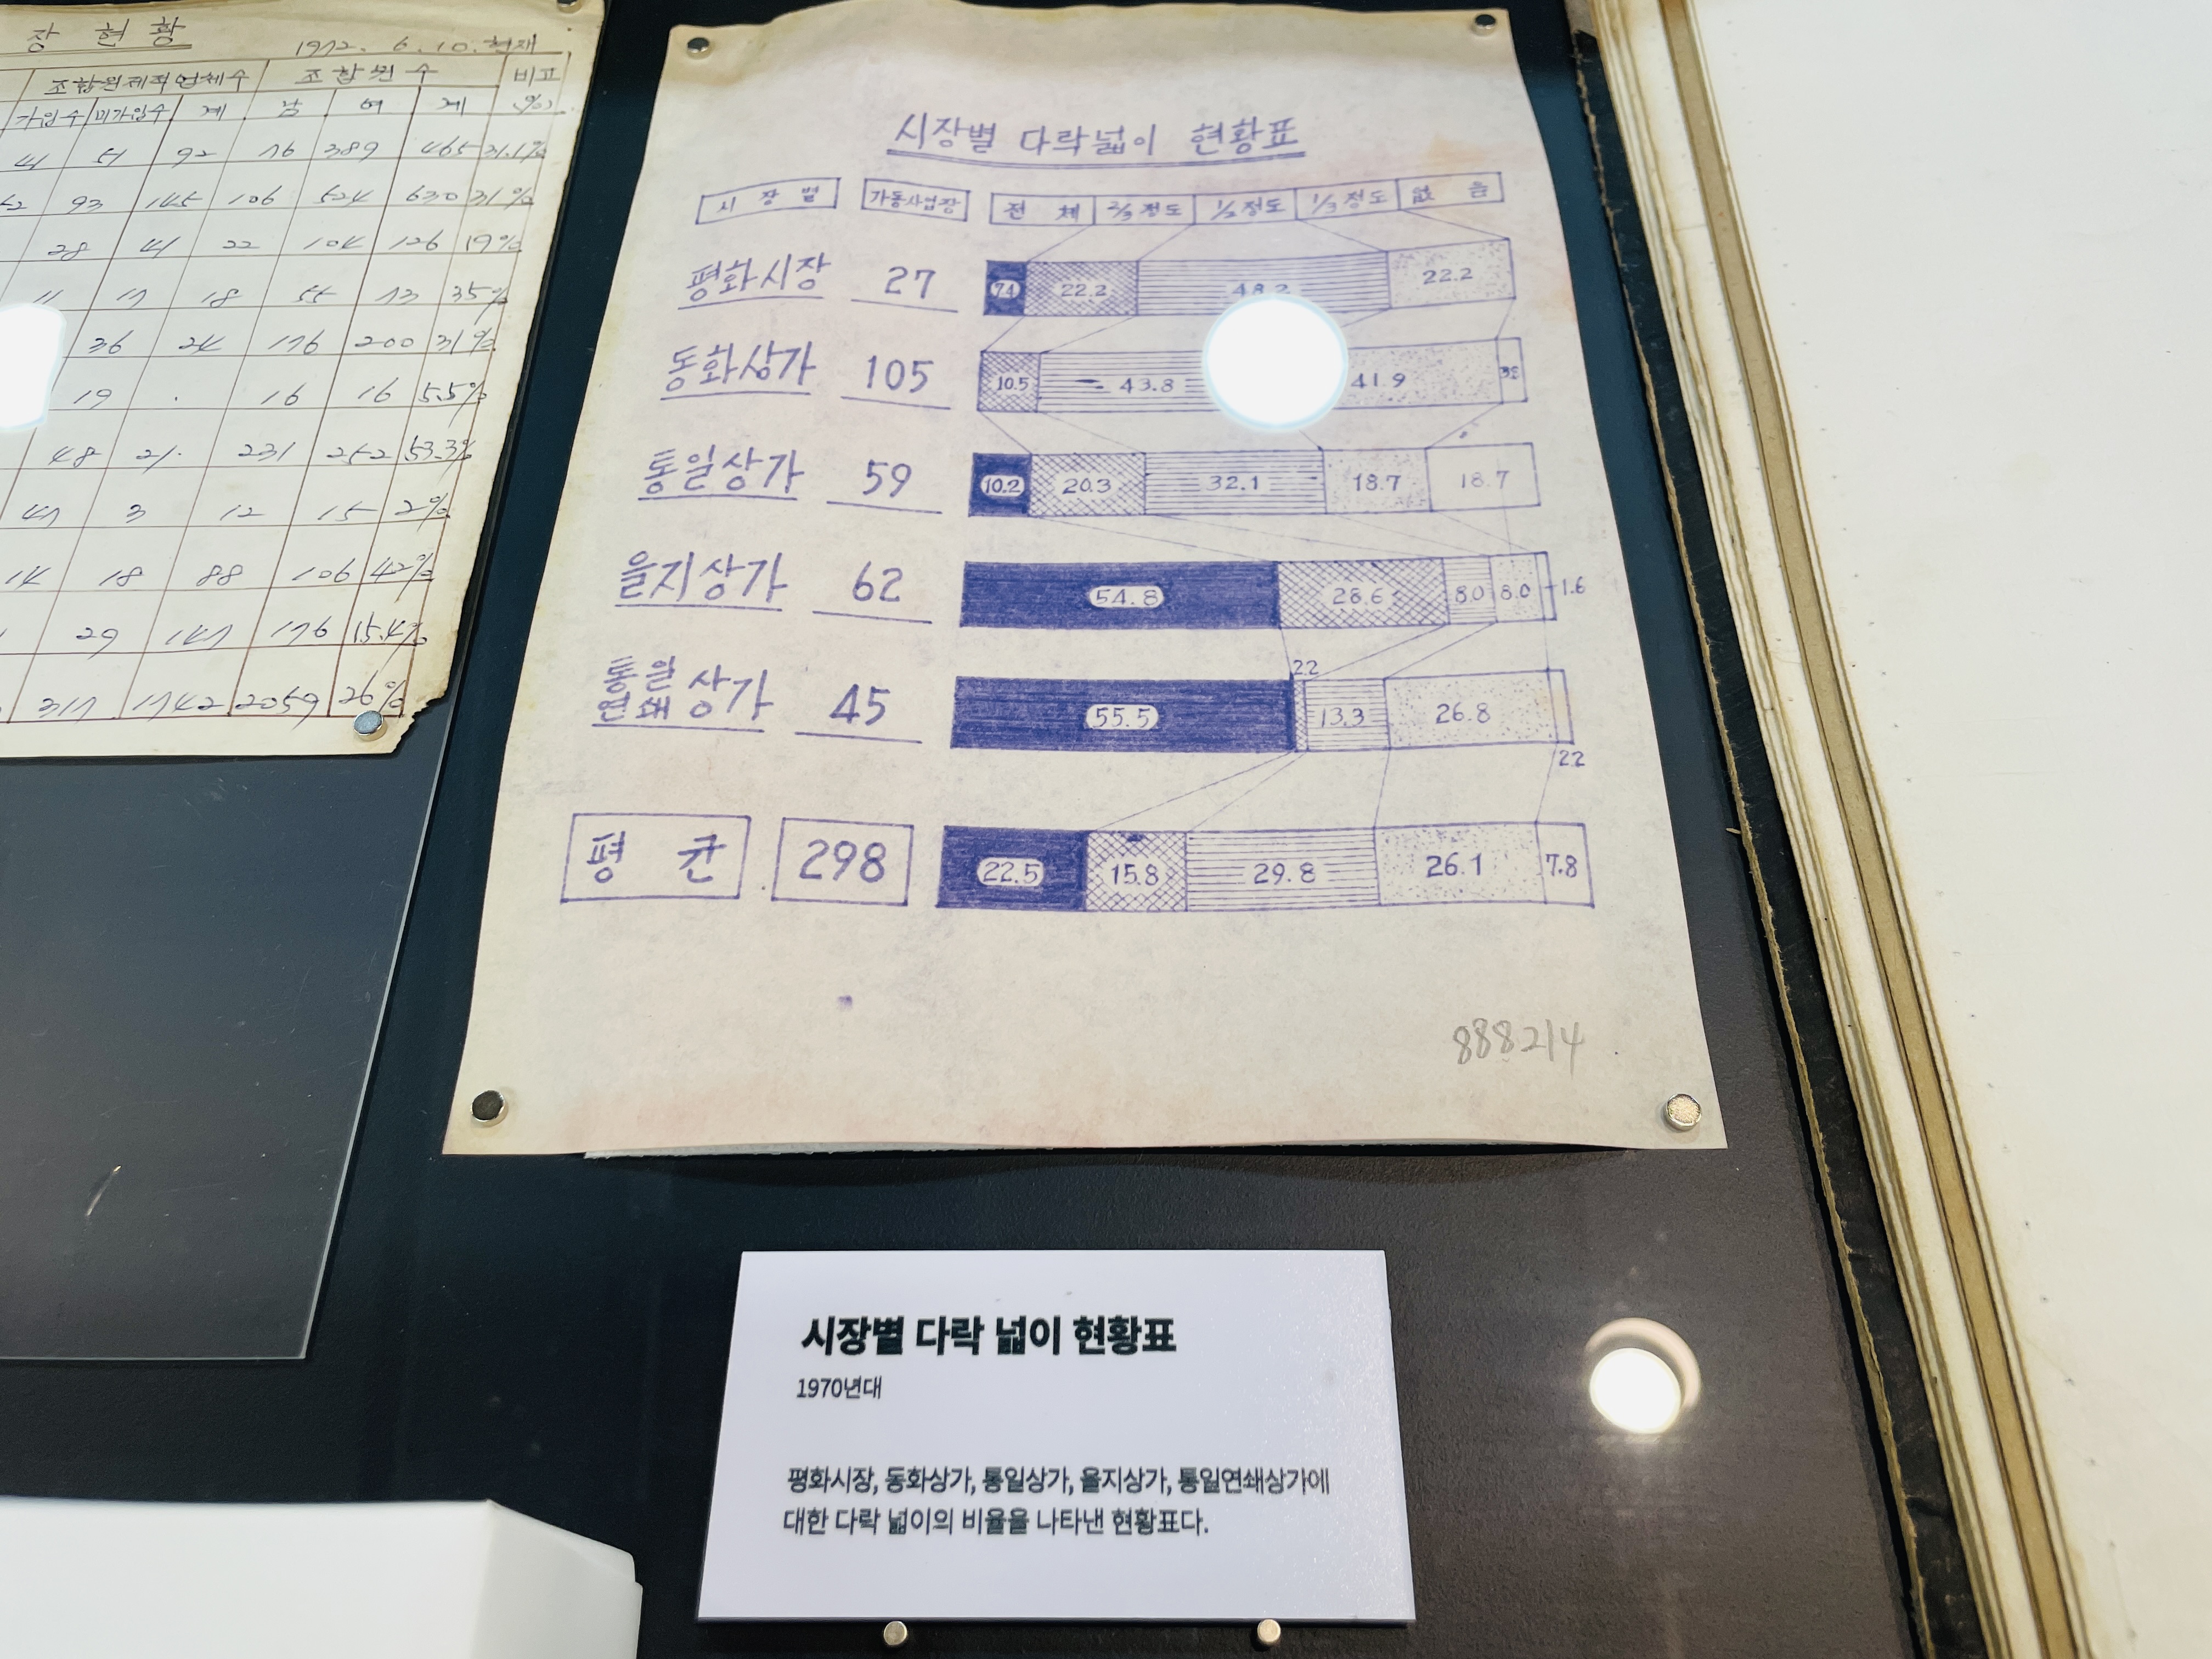 장 현황
1972. 6. 10. 현재
조합원제적업체수 조합원수 비고
가입수 미가입수 계 남 여 계 (%)
41 51 92 76 389 465 31.1%
52 93 145 106 524 630 31%
28 41 22 104 126 19%
11 17 18 55 73 35%
36 24 176 200 31%
19 . 16 16 5.5%
48 21. 231 252 53.3%
47 3 12 15 2%
14 18 88 106 42%
29 147 176 15.4%
317 1742 2059 26%
시장별 다락넓이 현황표
시장별 가동사업장 전체 2/3정도 1/2정도 1/3정도 없음
평화시장 27 7.4 22.2 48.2 22.2
동화상가 105 10.5 43.8 41.9 3.8
통일상가 59 10.2 20.3 32.1 18.7 18.7
을지상가 62 54.8 28.6 8.0 8.0 1.6
통일연쇄상가 45 55.5 2.2 13.3 26.8 2.2
평균 298 22.5 15.8 29.8 26.1 7.8
888214
시장별 다락 넓이 현황표
1970년대
평화시장, 동화상가, 통일상가, 을지상가, 통일연쇄상가에
대한 다락 넓이의 비율을 나타낸 현황표다.